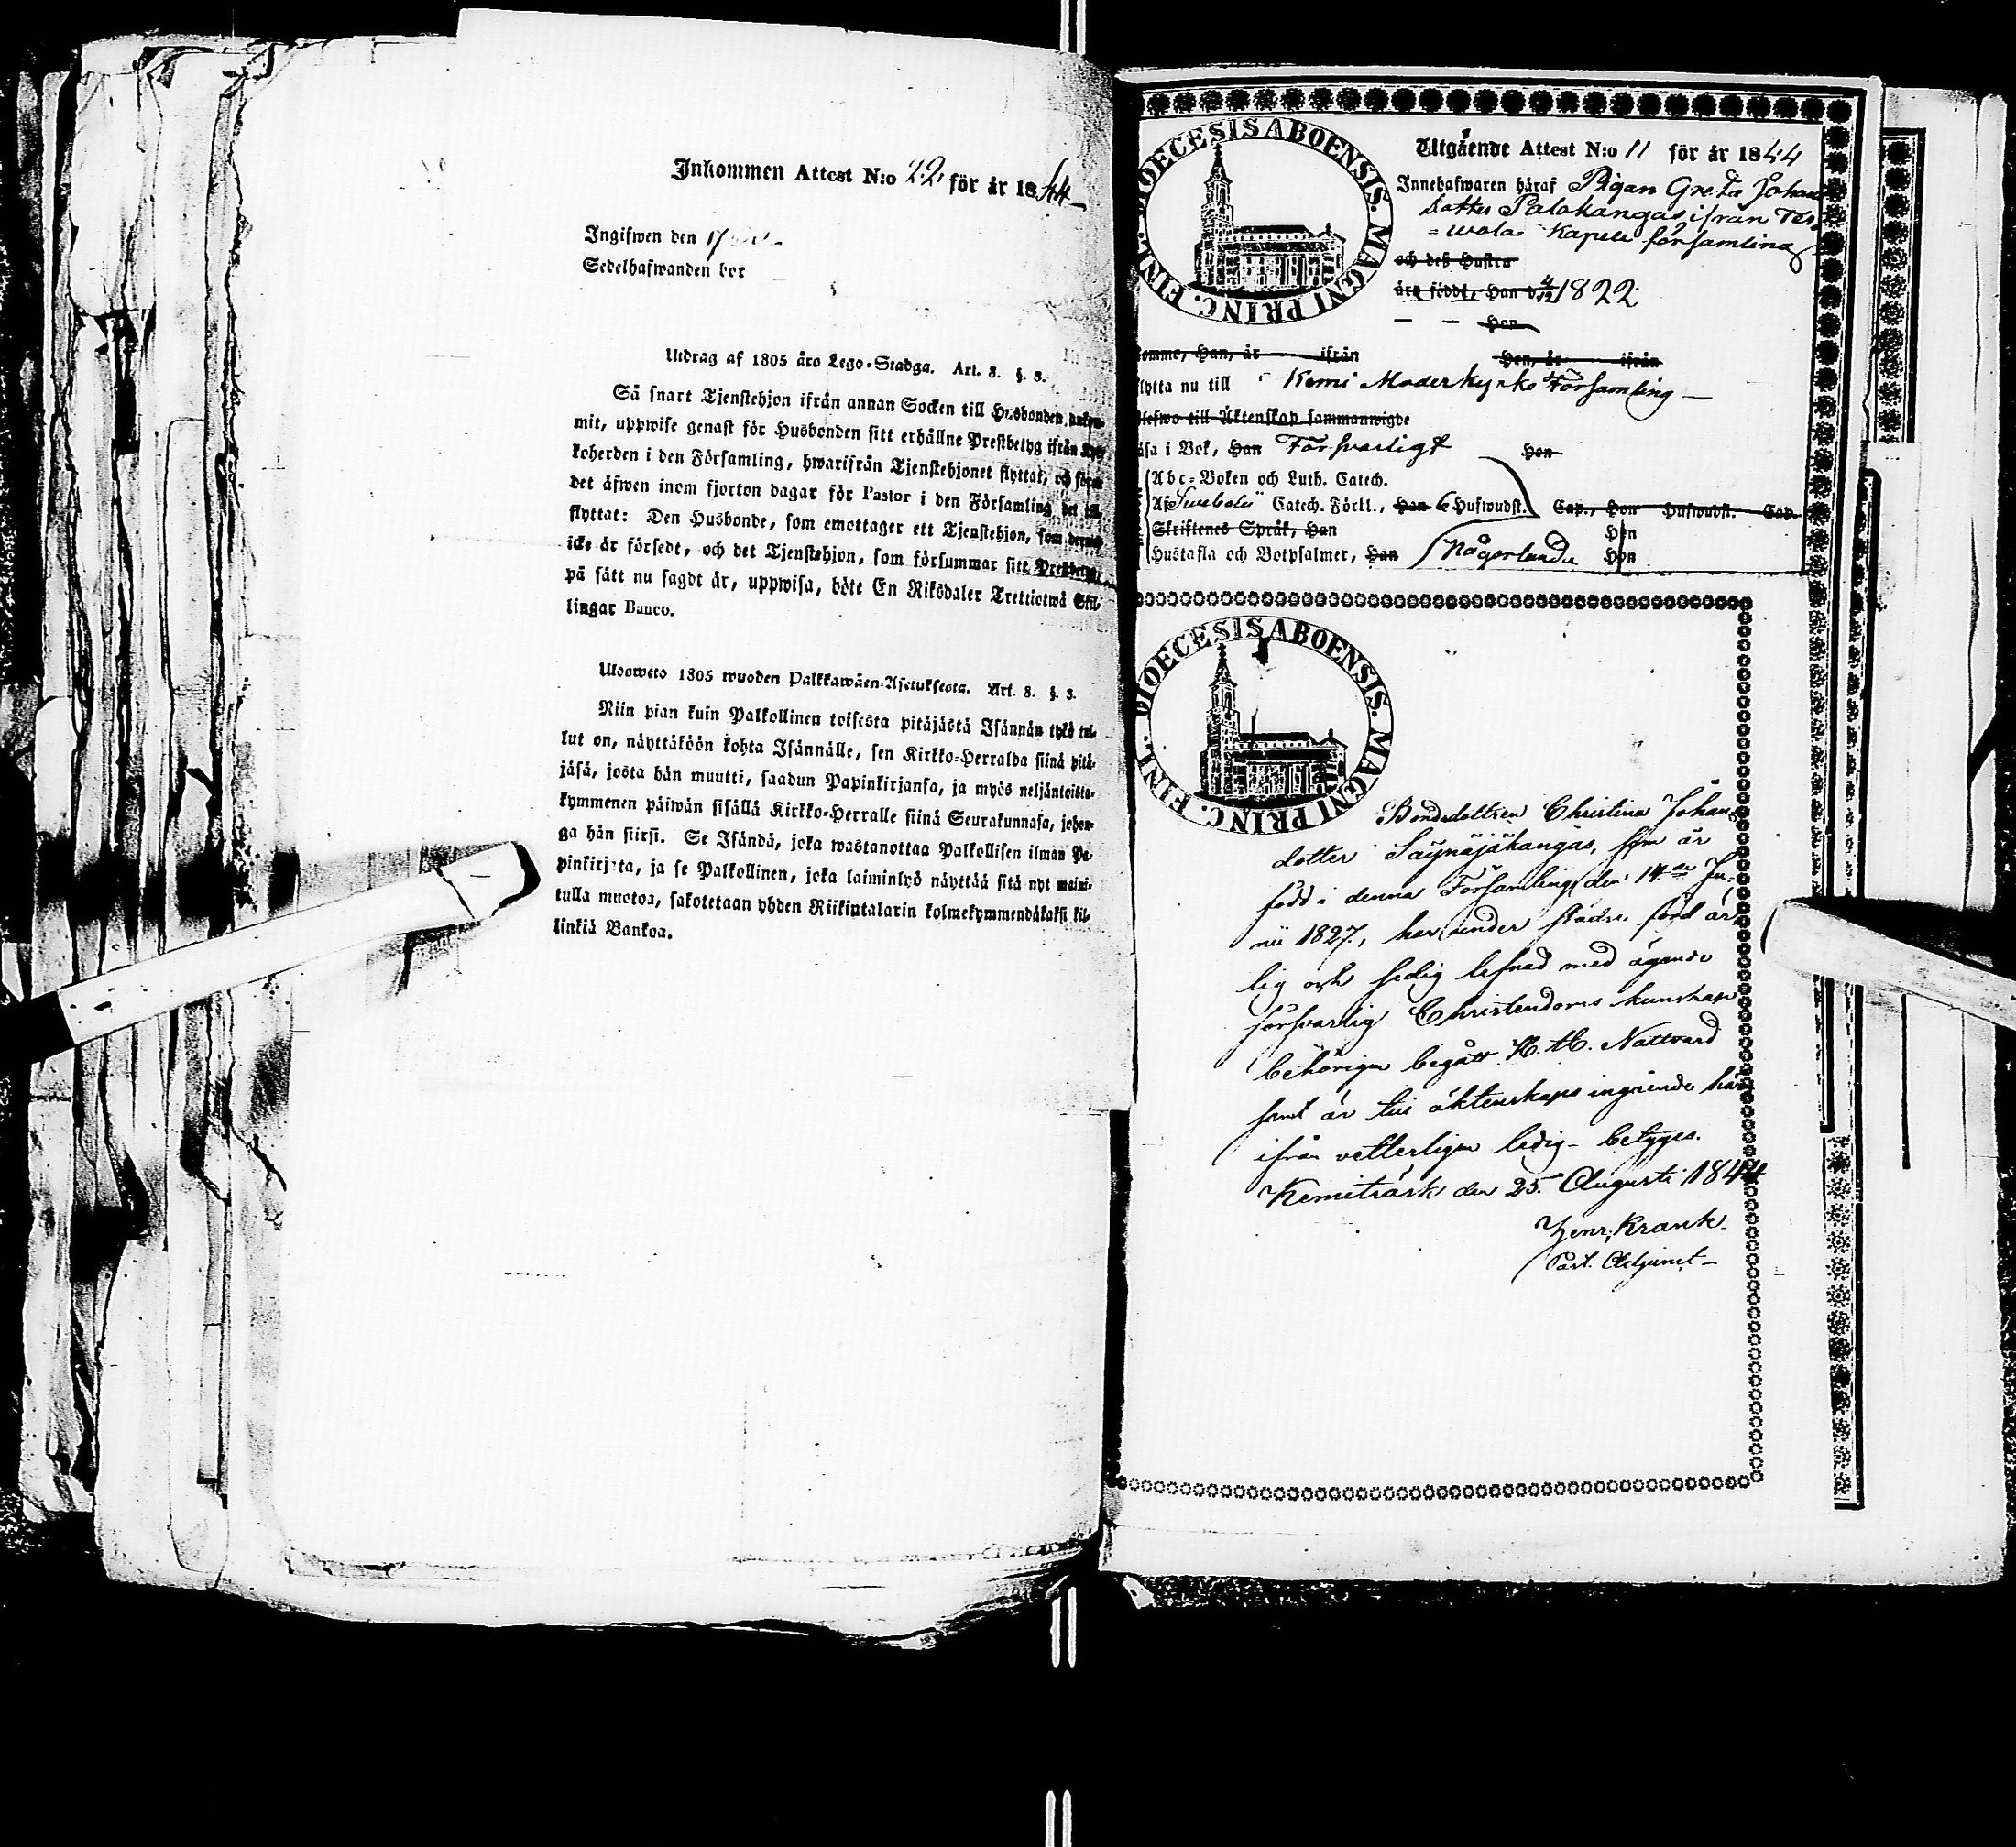 Inkommen Attest N:o 22. för år 1844
Ingifwen den 17
Sedelhafwanden bor
Utdrag af 1805 års Lego-Stadga. Art. 8. §. 3.
Så snart Tjenstehjon ifrån annan Socken till Husbonden ankom-
mit, uppwise genast för Husbonden sitt erhållne Prestbetyg ifrån Kyr-
koherden i den Församling, hwarifrån Tjenstehjonet flyttat, och
det äfwen inom fjorton dagar för Pastor i den Församling det till-
flyttat: Den Husbonde, som emottager ett Tjenstehjon, som
icke är försedt, och det Tjenstehjon, som försummar sitt Prestbetyg
på sätt nu sagdt är, uppwisa, böte En Riksdaler Trettiotwå Skil-
lingar Banco.
Uloswets 1805 wuoden Palkkawäen-Asetuksesta. Art. 8. §. 3.
Niin pian kuin Palkollinen toisesta pitäjästä Isännän tykö tul-
lut on, näyttäköön kohta Isännälle, sen Kirkko-Herralda siinä pitä-
jäsä, josta hän muutti, saadun Papinkirjansa, ja myös neljäntoista-
kymmenen päiwän sisällä Kirkko-Herralle siinä Seurakunnasa, johon-
ga hän siirsi. Se Isändä, joka wastanottaa Palkollisen ilman Pa-
pinkirjata, ja se Palkollinen, joka laiminlyö näyttää sitä nyt maini-
tulla muotoa, sakotetaan yhden Riikintalarin kolmekymmendäkaksi kil-
linkiä Bankoa.
DIOECESIS ABOENSIS. MAGNI PRINC. FINL.
Utgående Attest N:o 11 för år 1844
Innehafwaren häraf Pigan Greta Johans
dotter Palokangas ifrån Ter-
=wola Kapell församling
och deß Hustru
äro födde, Han d. 4/12 1822
— — Hon
komme, Han, år ifrån Hon, år ifrån
flytta nu till Kemi Moderkyrko Församling —
Blefwo till Äktenskap sammanwigde
läsa i Bok, Han Försvarligt Hon
Abc-Boken och Luth. Catech.
Af Swebelii Catech. Förkl., Han 6 Hufwudst. Cap., Hon Hufwudst. Cap.
Skriftenes Språk, Han Hon
Hustafla och Botpsalmer, Han Någorlunda Hon
DIOECESIS ABOENSIS. MAGNI PRINC. FINL.
Bondedottren Christina Johans
dotter Säynäjäkangas, som är
född i denna Församling den 14de Ju-
nii 1827, har under städse förd är
lig och sedig lefnad med ägande
försvarlig Christendoms kunskap
behörigen begått H. H. Nattvard
samt är till äktenskaps ingående här
ifrån vetterligen ledig - betyges.
Kemiträsk den 25. Augusti 1844
Henr. Krank.
Past. Adjunct —